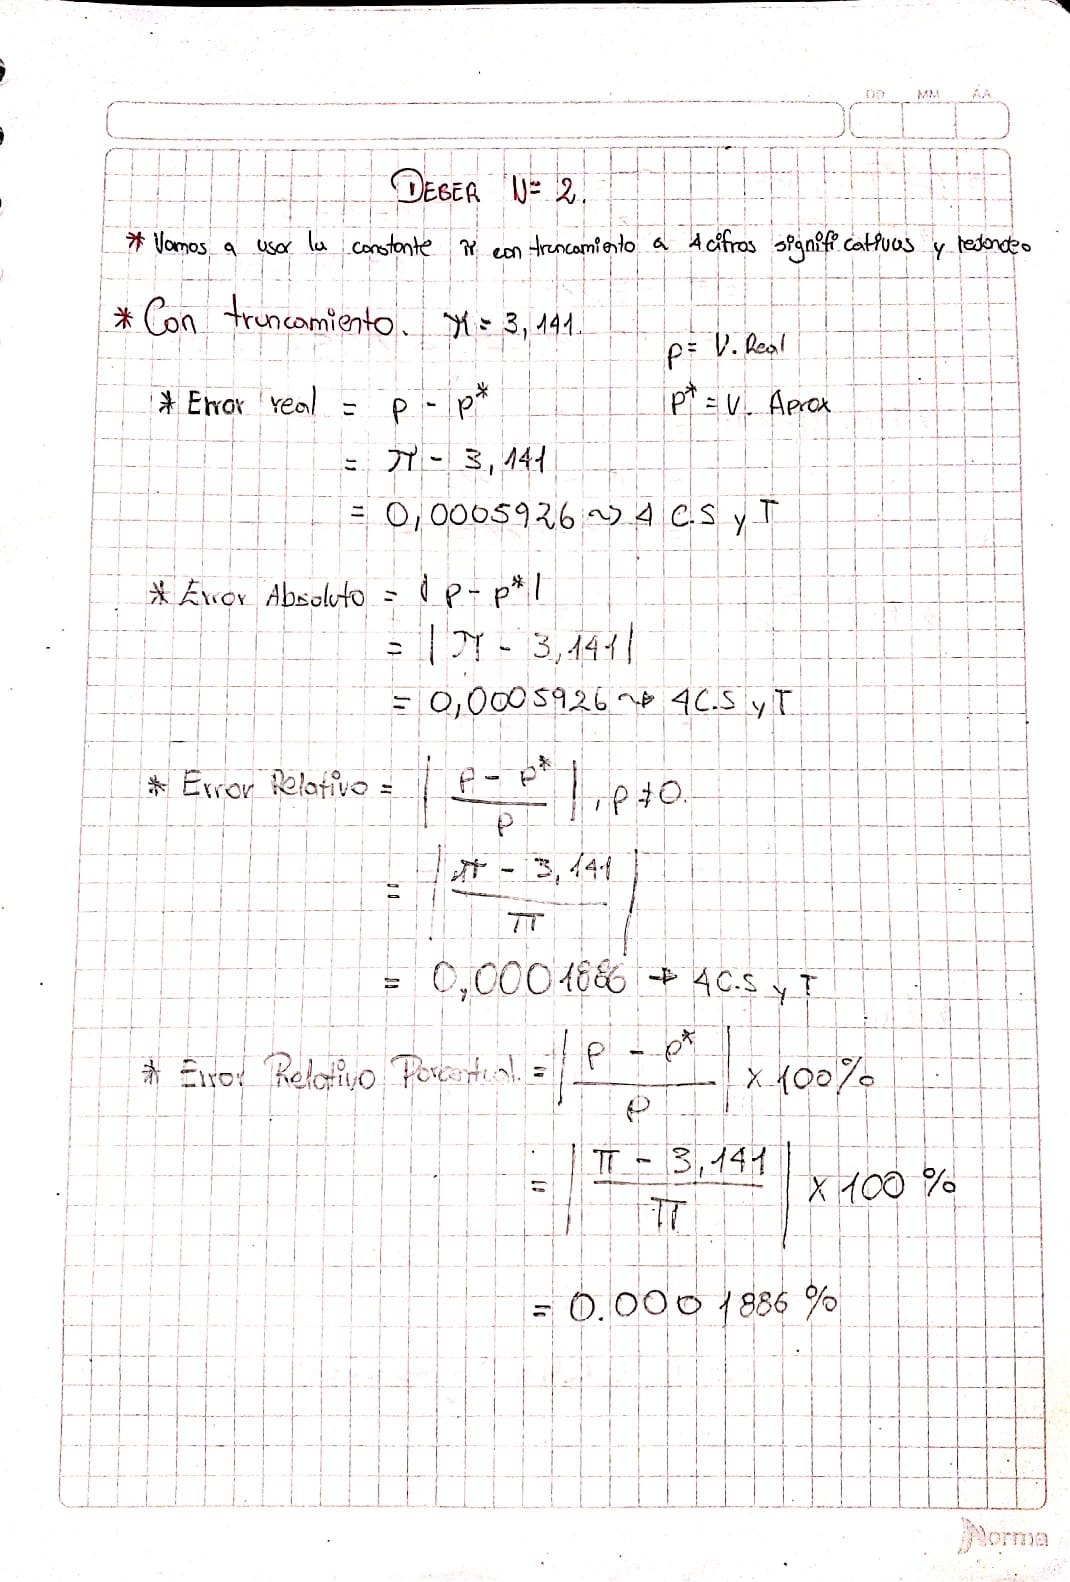 DD MM AA
DEBER N= 2.
* Vamos a usar la constante π con truncamiento a 4 cifras significativas y redondeo
* Con truncamiento. π = 3,141.
p = V. Real
* Error real = p - p*
p* = V. Aprox
= π - 3,141
= 0,0005926 ~> 4 C.S y T
* Error Absoluto = |p - p*|
= |π - 3,141|
= 0,0005926 ~> 4C.S y T
* Error Relativo = |(p - p*)/p|, p≠0.
= |(π - 3,141)/π|
= 0,0001886 → 4C.S y T
* Error Relativo Porcentual. = |(p - p*)/p| x 100%
= |(π - 3,141)/π| x 100 %
= 0.0001886 %
Norma